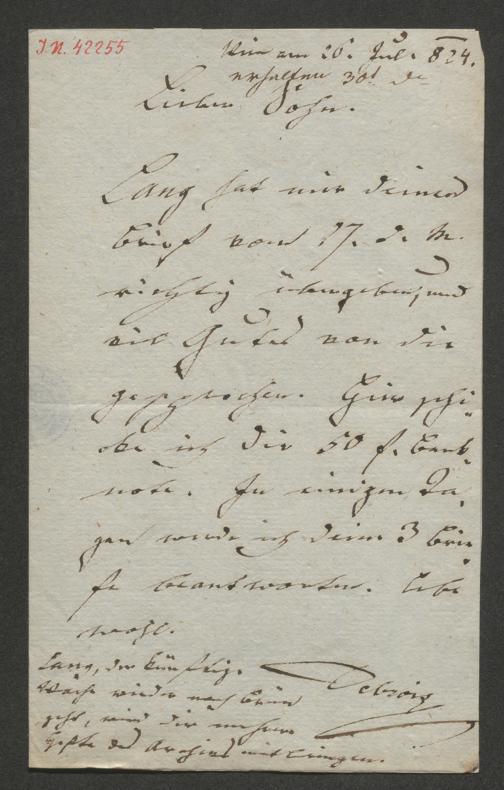 I.N. 42255
Wien am 26. Jul. 824.
erhalten 30t de
Lieber Sohn.
Lang hat mir deinen
Brief vom 17. d. M.
richtig übergeben, und
viel Gutes von dir
gesprochen. Hier schi-
cke ich dir 50 f. Bank-
note. In einigen Ta-
gen werde ich deine 3 Brie-
fe beantworten. Lebe
wohl.
Lang, der künftige
Woche wieder nach Brünn
geht, wird dir mehrere
Hefte des Archivs mitbringen.